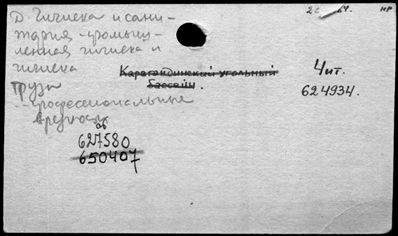 Д. Гигиена и сани-
тария - промыш-
ленная гигиена и
гигиена
труда
- профессиональные
вредности
Карагандинский угольный
бассейн.
Чит.
624934.
об
627580
650407